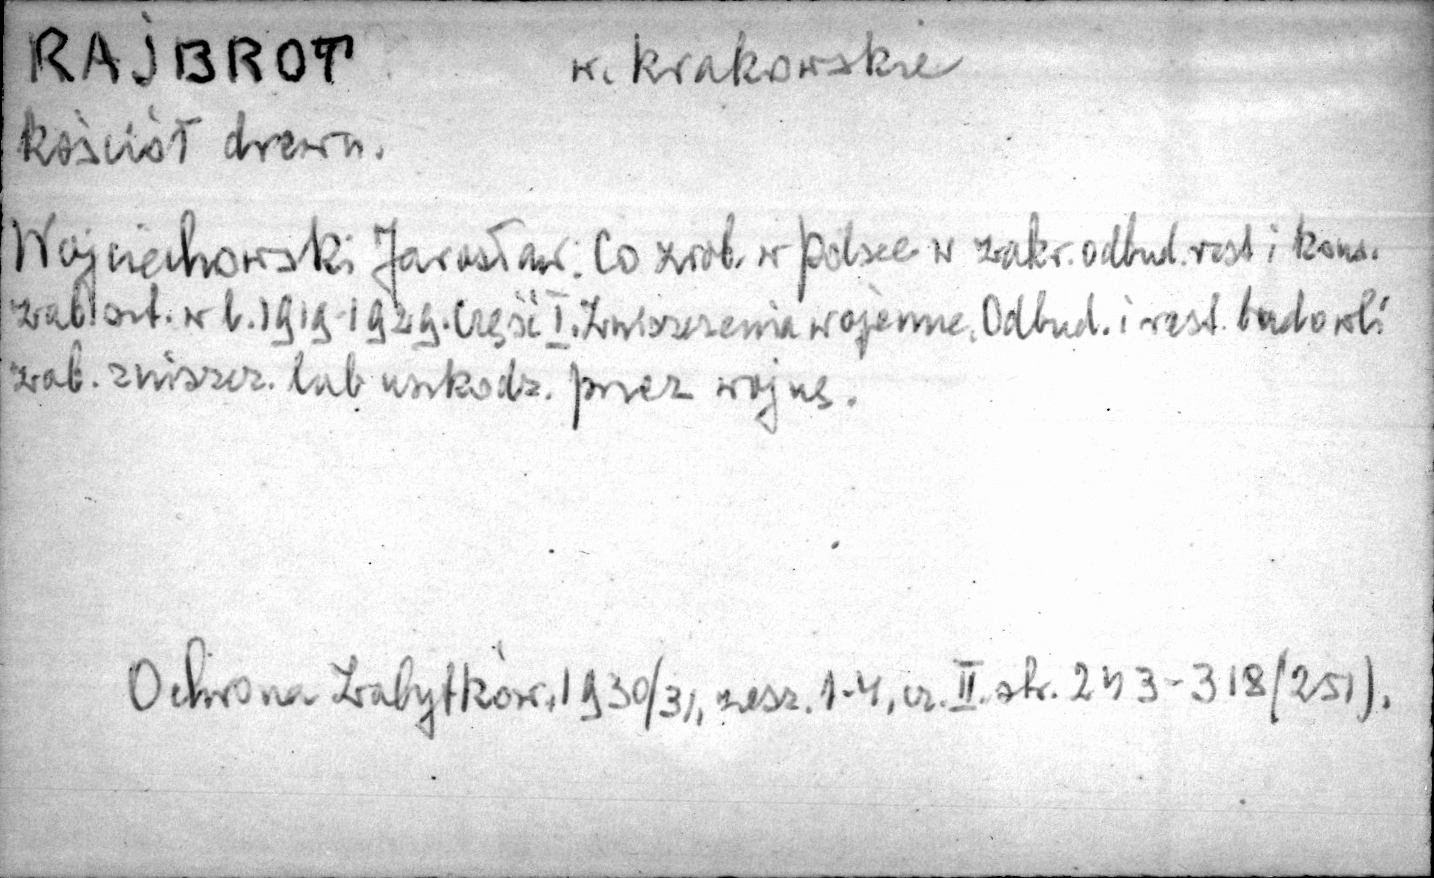 RAJBROT w. krakowskie
kościół drewn.
Wojciechowski Jarosław: Co zrob. w Polsce w zakr. odbud. rest i kons.
zab. szt. w l. 1919-1929. Część I. Zniszczenia wojenne. Odbud. i rest. budowli
zab. zniszcz. lub uszkodz. przez wojnę.
Ochrona Zabytków, 1930/31, zesz. 1-4, cz. II. str. 243-318 (251).